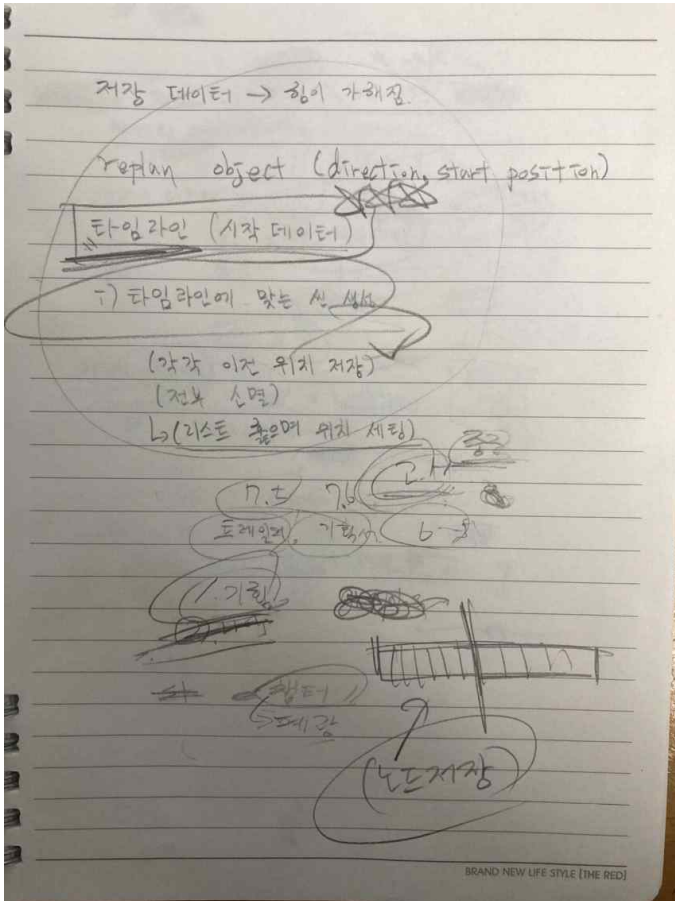 저장 데이터 → 힘이 가해짐.
replan object (direction, start position)
타임라인 (시작 데이터)
i) 타임라인에 맞는 씬 생성
(각각 이전 위치 저장)
(전부 소멸)
↳(리스트 훑으며 위치 세팅)
기획서
1. 기획
챕터
(노드저장)
BRAND NEW LIFE STYLE [THE RED]